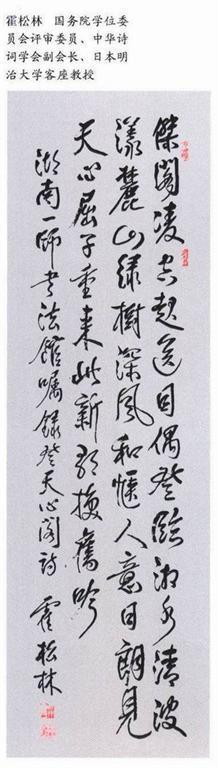 霍松林 国务院学位委
员会评审委员、中华诗
词学会副会长、日本明
治大学客座教授
傑閣凌空起送目偶登臨湘水清波
漾麓山綠樹深風和愜人意日朗見
天心屈子重來此新歌換舊吟
湖南一師書法館囑錄登天心閣詩 霍松林